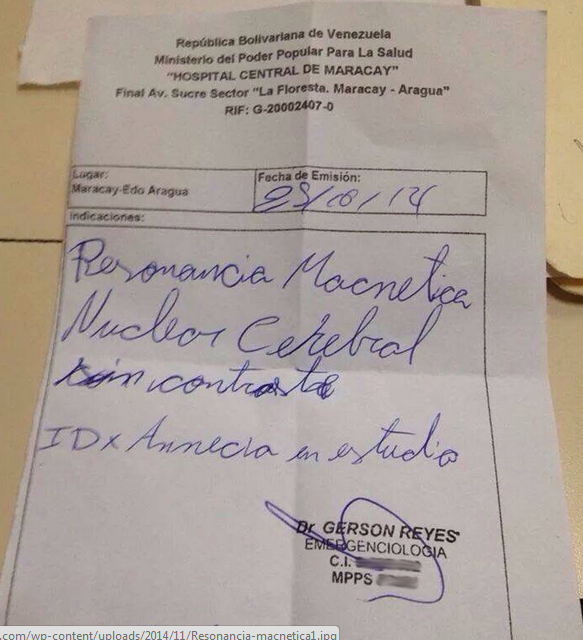 República Bolivariana de Venezuela
Ministerio del Poder Popular Para La Salud
"HOSPITAL CENTRAL DE MARACAY"
Final Av. Sucre Sector "La Floresta. Maracay - Aragua"
RIF: G-20002407-0
Lugar:
Maracay-Edo Aragua
Fecha de Emisión:
/ 14
Indicaciones:
Resonancia Macnetica
Nuclear Cerebral
contraste
IDx Amnecia en estudio
Dr. GERSON REYES
EMERGENCIOLOGIA
C.I.
MPPS
.com/wp-content/uploads/2014/11/Resonancia-macnetica1.jpg